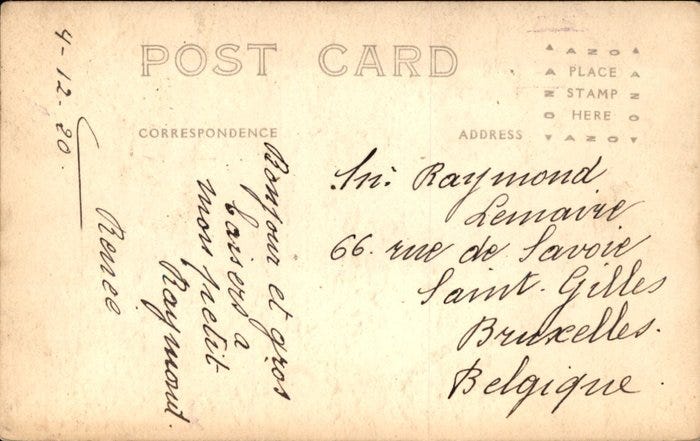 POST CARD
AZO
PLACE
STAMP
HERE
AZO
CORRESPONDENCE
ADDRESS
4-12-20.
Bonjour et gros
baisers a
mon petit
Raymont.
Renee
Raymond
Lemaire
66. rue de Savoie
Saint. Gilles
Bruxelles.
Belgique.